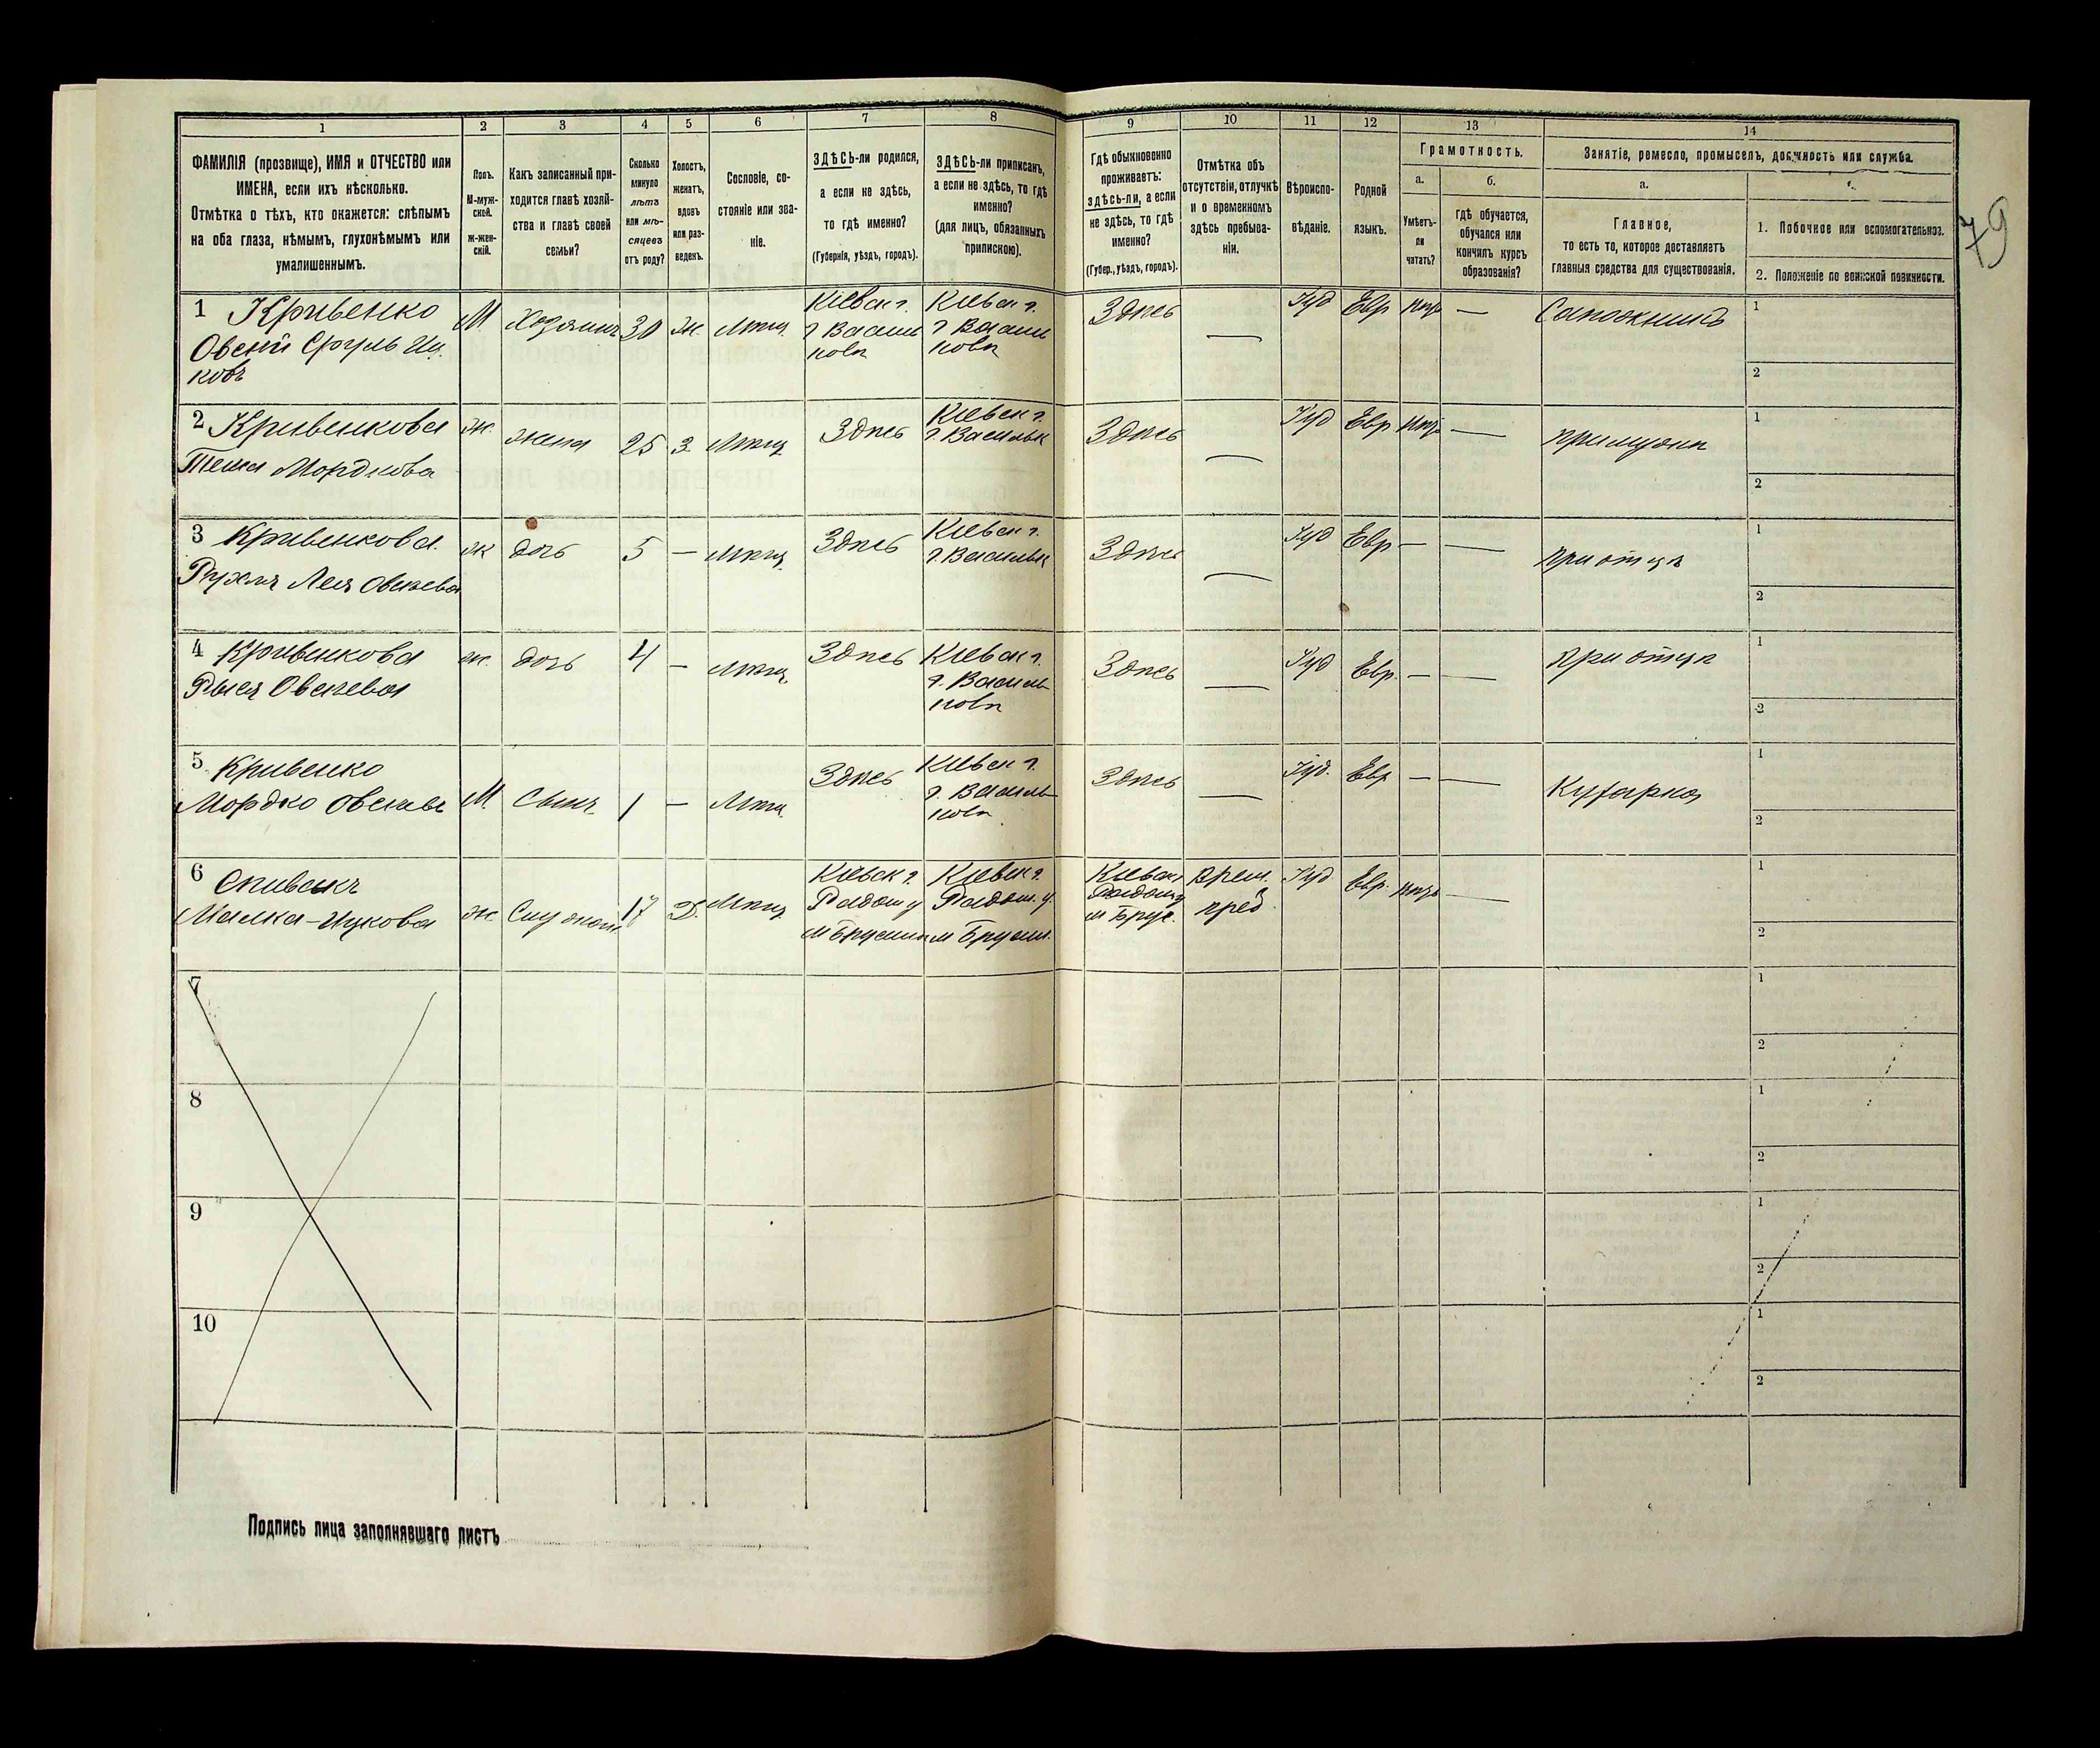 79
1 2 3 4 5 6 7 8 9 10 11 12 13 14
ФАМИЛІЯ (прозвище), ИМЯ и ОТЧЕСТВО или
ИМЕНА, если ихъ нѣсколько.
Отмѣтка о тѣхъ, кто окажется: слѣпымъ
на оба глаза, нѣмымъ, глухонѣмымъ или
умалишеннымъ.
Полъ.
М-муж-
ской.
Ж-жен-
скій.
Какъ записанный при-
ходится главѣ хозяй-
ства и главѣ своей
семьи?
Сколько
минуло
лѣтъ
или мѣ-
сяцевъ
отъ роду?
Холостъ,
женатъ,
вдовъ
или раз-
веденъ.
Сословіе, со-
стояніе или зва-
ніе.
ЗДѢСЬ-ли родился,
а если не здѣсь,
то гдѣ именно?
(Губернія, уѣздъ, городъ).
ЗДѢСЬ-ли приписанъ,
а если не здѣсь, то гдѣ
именно?
(для лицъ, обязанныхъ
припискою).
Гдѣ обыкновенно
проживаетъ:
здѣсь-ли, а если
не здѣсь, то гдѣ
именно?
(Губер., уѣздъ, городъ).
Отмѣтка объ
отсутствіи, отлучкѣ
и о временномъ
здѣсь пребыва-
ніи.
Вѣроиспо-
вѣданіе.
Родной
языкъ.
Грамотность.
а.
Умѣетъ-
ли
читать?
б.
Гдѣ обучается,
обучался или
кончилъ курсъ
образованія?
Занятіе, ремесло, промыселъ, должность или служба.
а.
Главное,
то есть то, которое доставляетъ
главныя средства для существованія.
1. Побочное или вспомогательное.
2. Положеніе по воинской повинности.
1 Кривенко
Овсей Сруль Иц.
ковъ
М Хозяинъ 30 Ж. Мѣщ.
Кіевск г.
г Василь
ковѣ
Кіевск г.
г Василь
ковѣ
Здѣсь — Іуд Евр — Сапожникъ
1
2
2 Кривенкова
Мордкова
Ж. жена 25 З. Мѣщ Здѣсь
Кіевск г.
г. Васильк
Здѣсь — Іуд Евр — при мужѣ
1
2
3 Кривенкова
Рухля Лея Овсѣева
Ж дочь 5 — Мѣщ. Здѣсь
Кіевск г.
г. Васильк
Здѣсь — Іуд Евр — — при отцѣ
1
2
4 Кривенкова
Рыся Овсѣева
Ж. дочь 4 — Мѣщ Здѣсь
Кіевск г.
г. Василь
ковѣ
Здѣсь — Іуд Евр. — — при отцѣ
1
2
5 Кривенко
Мордко
М. Сынъ 1 — Мѣщ. Здѣсь
Кіевск г.
г. Василь
ковѣ
Здѣсь — Іуд. Евр — — Кухарка
1
2
6 Спивакъ
Малка-Ицкова
Ж. 17 Д. Мѣщ
Кіевск г.
Радом у
м Брусил
Кіевск г.
Радом. у.
м Брусил.
Кіевск г
м Брус.
Врем.
преб.
Іуд Евр. —
1
2
7
1
2
8
1
2
9
1
2
10
1
2
Подпись лица заполнявшаго листъ